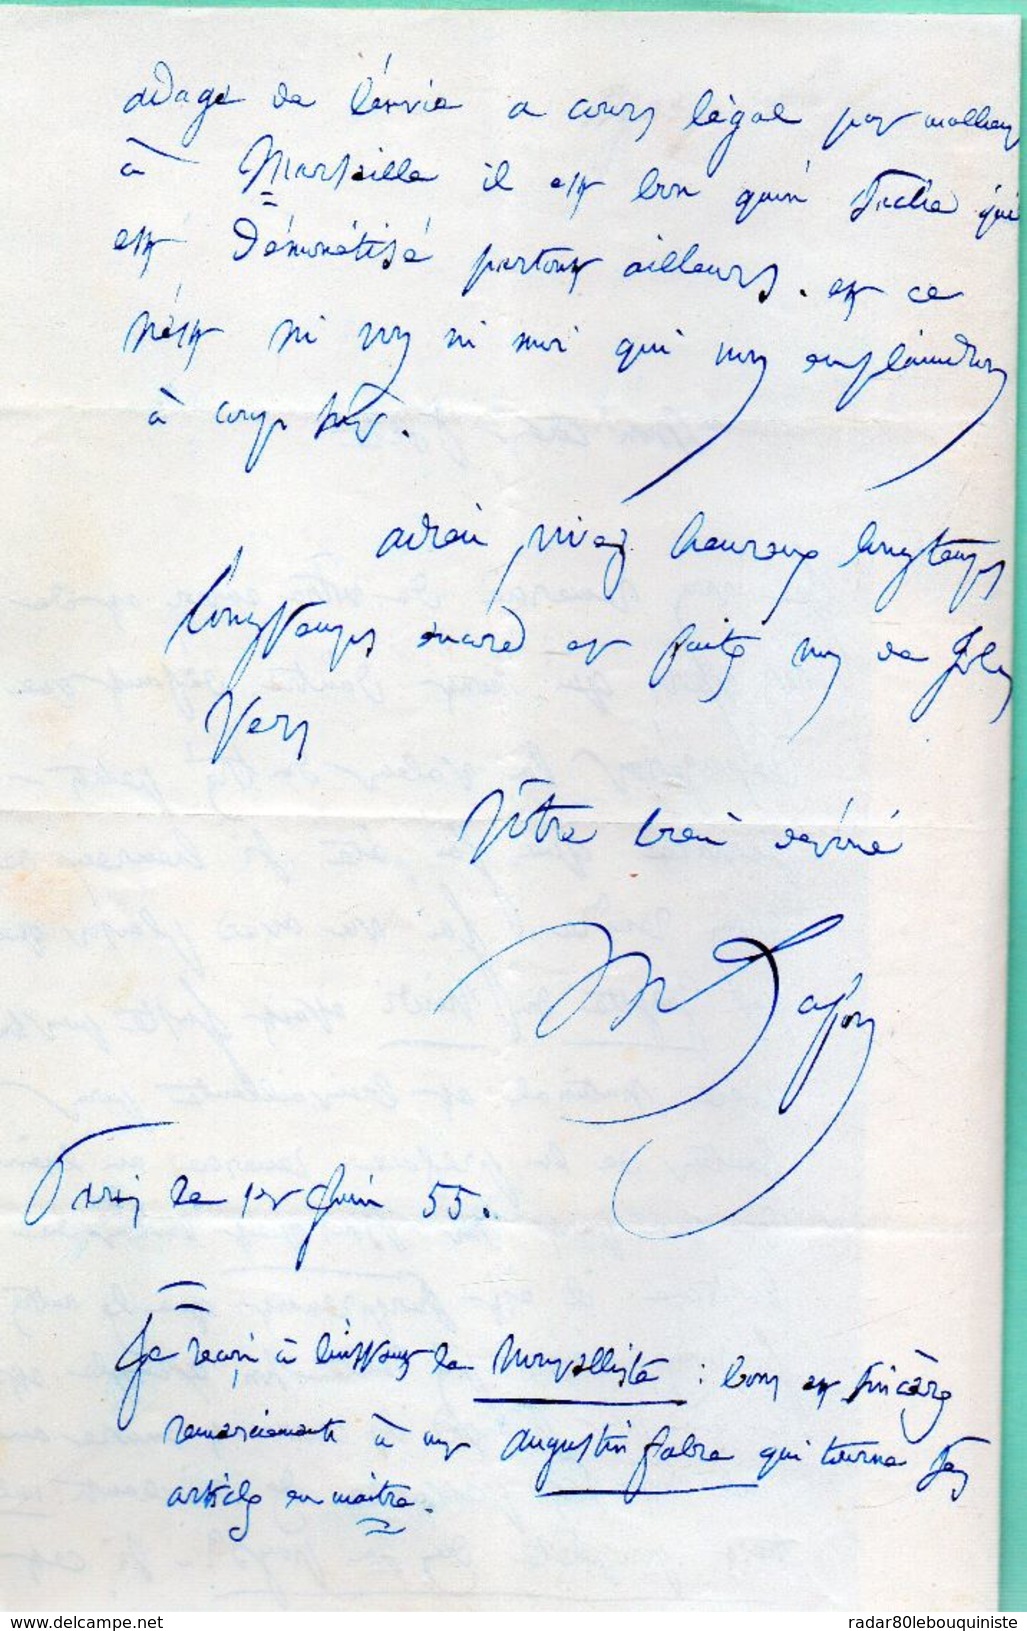 adage de l'envie a cours légal par malheur
à Marseille il est bon qu'un siècle qui
est démonétisé partout ailleurs. et ce
n'est ni vous ni moi qui nous en plaindrons
à coup sûr.
adieu vivez heureux longtemps
longtemps encore et faites nous de jolis
vers
Votre bien dévoué
M Lafon
Paris le 1er Juin 55.
Je reçois à l'instant le Nouvelliste : bons et sincères
remerciements à mr augustin fabre qui tourne ses
articles en maître.
delcampe.net
radar80lebouquiniste